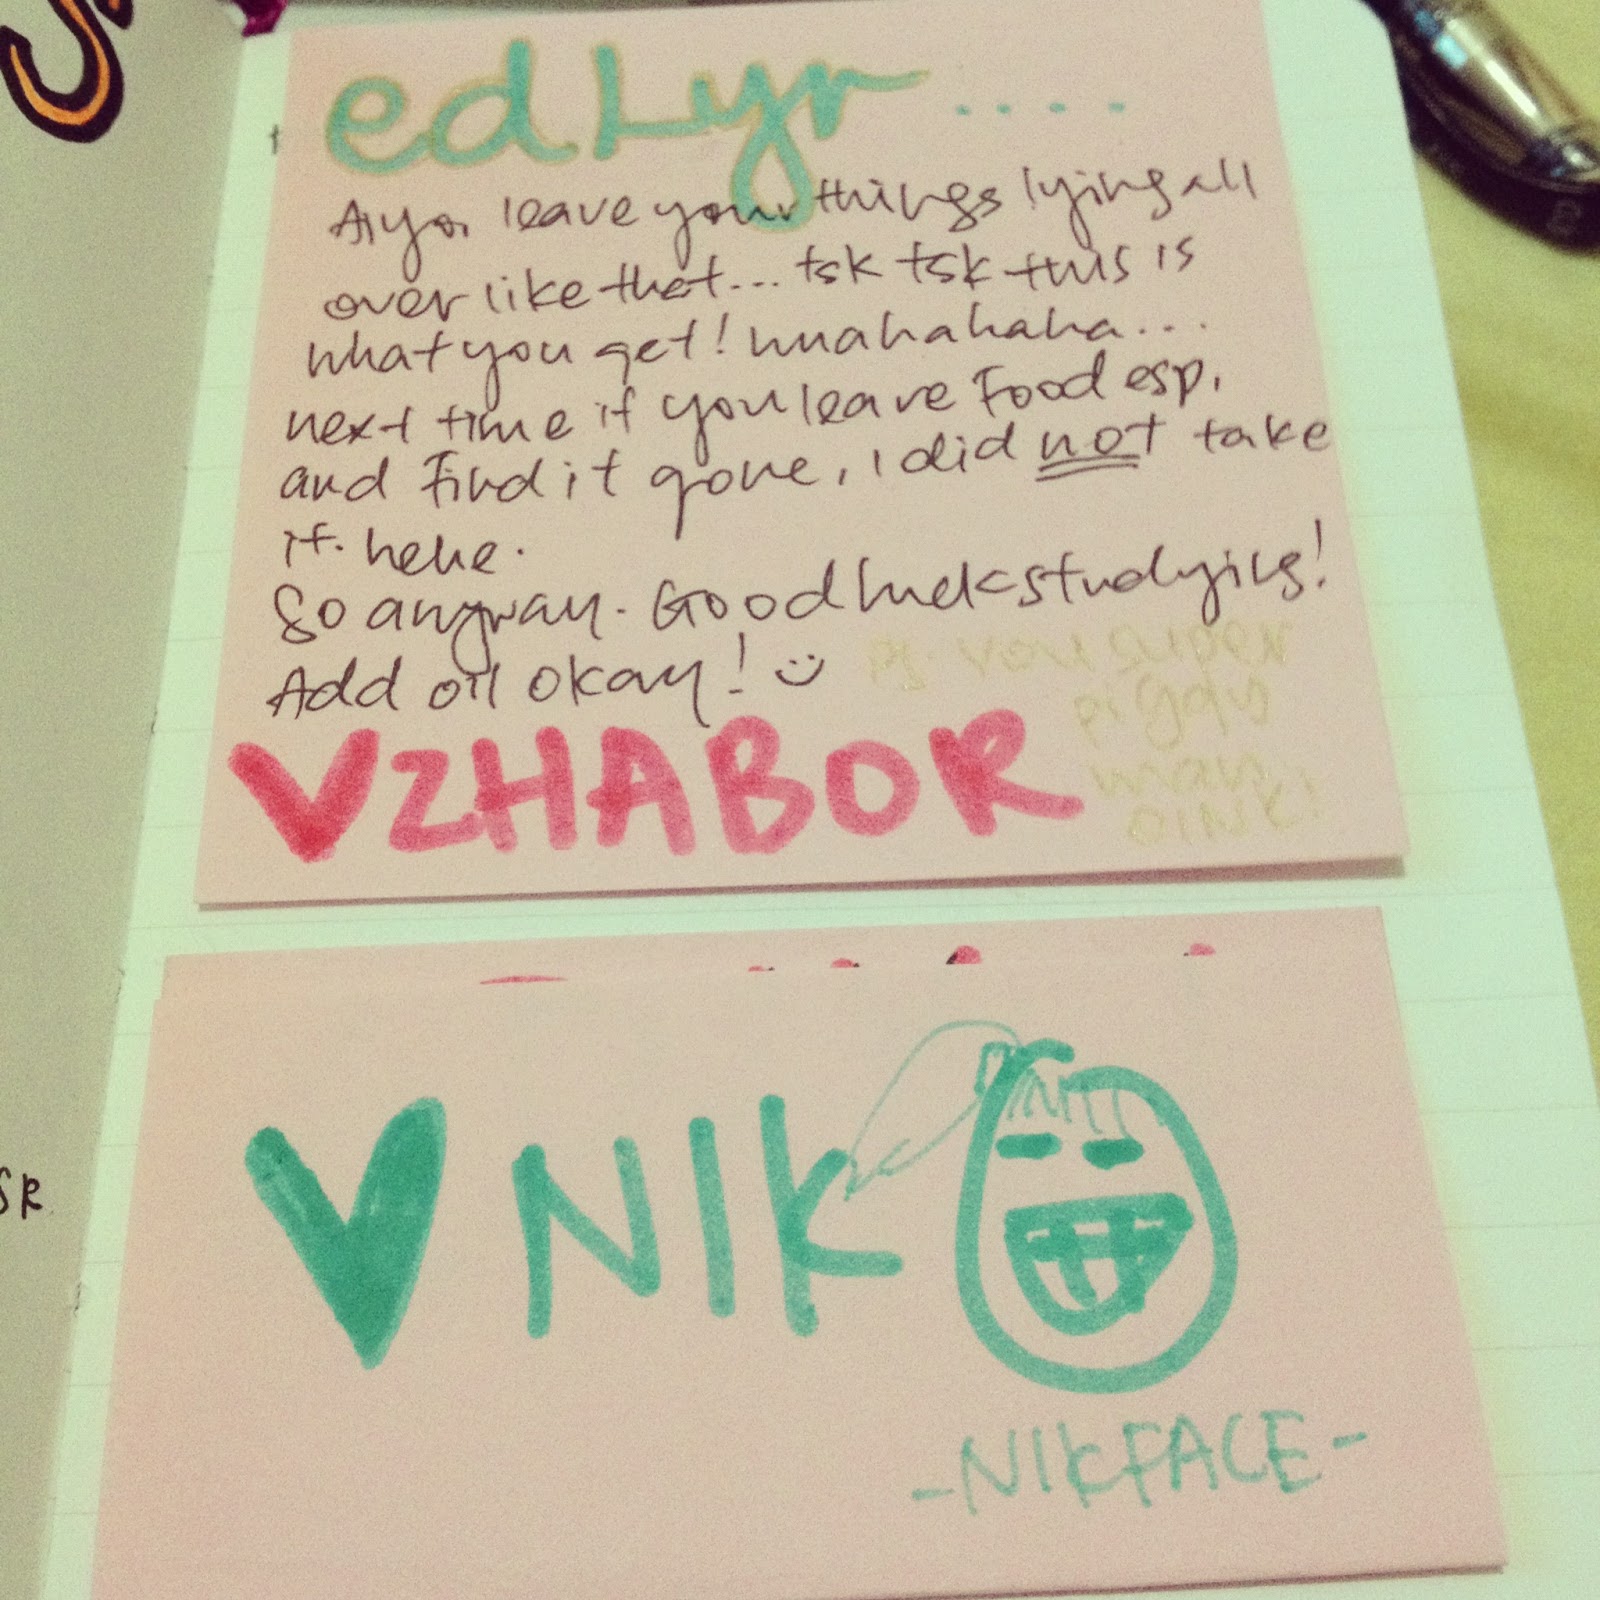 edlyr ....
Aiyo, leave your things lying all
over like that... tsk tsk this is
what you get! muahahaha...
next time if you leave food esp,
and find it gone, I did not take
it. hehe.
So anyway. Good luck studying!
Add oil okay!
Ps. you super
piggy
man
OINK!
♥ZHABOR
♥NIK
-NIKFACE-
SR